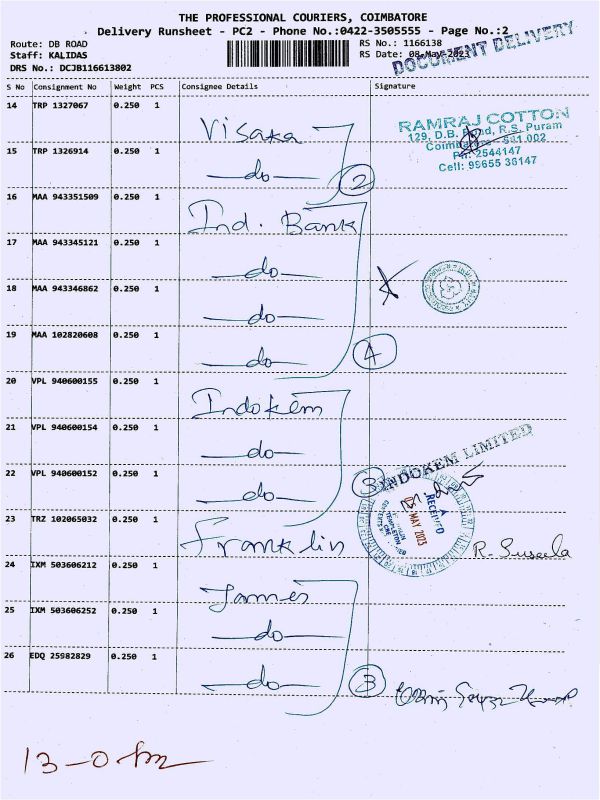 THE PROFESSIONAL COURIERS, COIMBATORE
Delivery Runsheet - PC2 - Phone No.:0422-3505555 - Page No.:2
Route: DB ROAD
Staff: KALIDAS
DRS No.: DCJB116613802
RS No.: 1166138
RS Date: 08-May-2023
DOCUMENT DELIVERY
S No Consignment No Weight PCS Consignee Details Signature
14 TRP 1327067 0.250 1 Visaka
RAMRAJ COTTON
129, D.B. Road, R.S. Puram
Coimbatore - 641 002
Ph: 2544147
Cell: 99655 36147
15 TRP 1326914 0.250 1 -do-
2
16 MAA 943351509 0.250 1 Ind. Bank
17 MAA 943345121 0.250 1 -do-
18 MAA 943346862 0.250 1 -do-
19 MAA 102820608 0.250 1 -do-
4
20 VPL 940600155 0.250 1 Indokem
21 VPL 940600154 0.250 1 -do-
22 VPL 940600152 0.250 1 -do-
3
INDOKEM LIMITED
RECEIVED
MAY 2023
23 TRZ 102065032 0.250 1 Franklin
R. Suseela
24 IXM 503606212 0.250 1 James
25 IXM 503606252 0.250 1 -do-
26 EDQ 25982829 0.250 1 -do-
3